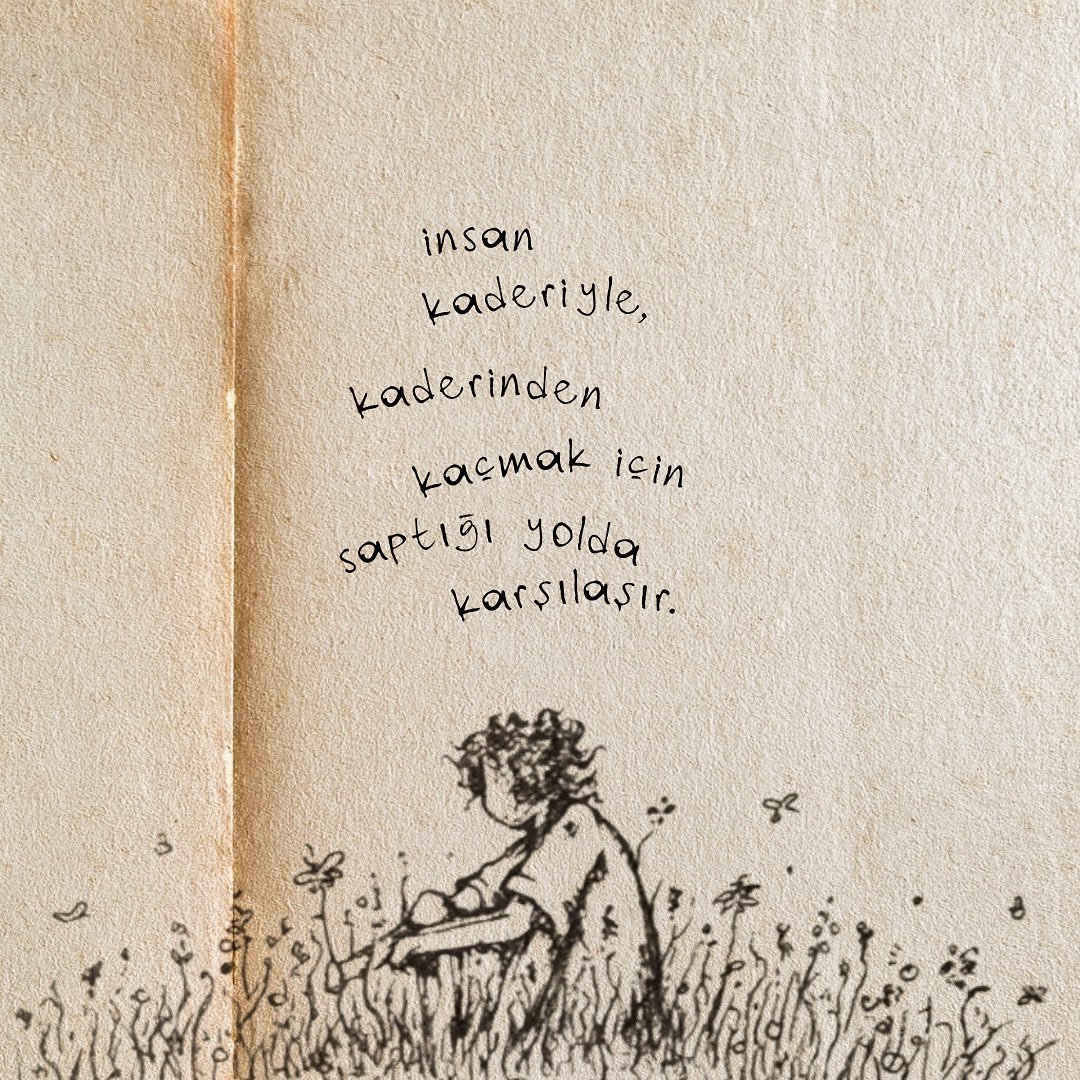 insan
kaderiyle,
kaderinden
kaçmak için
saptığı yolda
karşılaşır.